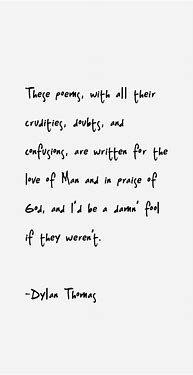 These poems, with all their
crudities, doubts, and
confusions, are written for the
love of Man and in praise of
God, and I'd be a damn' fool
if they weren't.
-Dylan Thomas